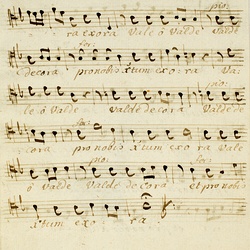 pio:
ra exora Vale ô Valde valde
for:
decora pro nobis xtum exo ra Va
le ô Valde Valde decora Valde de
for:
cora pro nobis xtum exora Vale
pio: for:
ô Valde Valde de cora et pro nobis
xtum exo ra